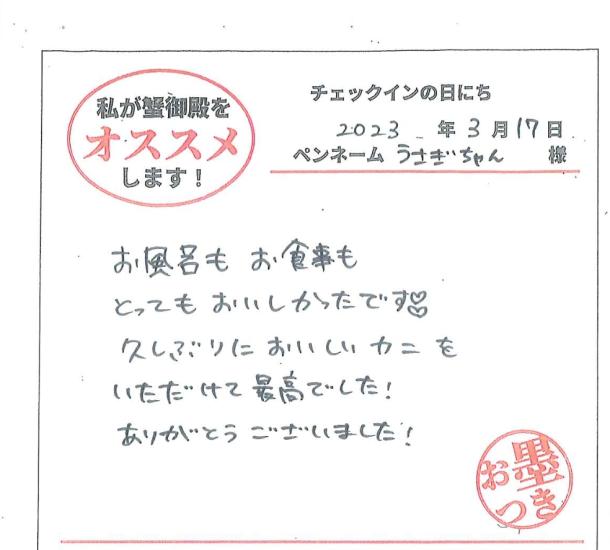 私が蟹御殿を
オススメ
します！
チェックインの日にち
2023年3月17日
ペンネーム うさぎちゃん 様
お風呂も お食事も
とっても おいしかったです♡♡
久しぶりに おいしい カニ を
いただけて 最高でした!
ありがとう ございました!
お墨
つき